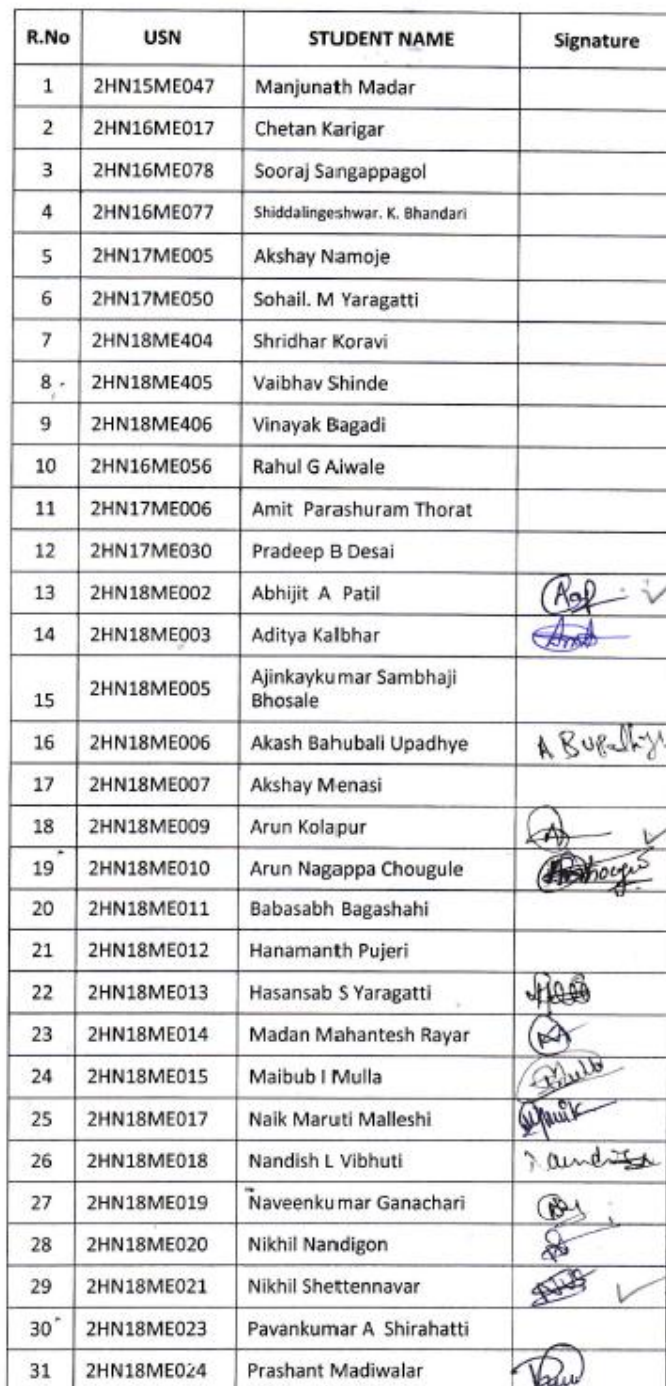 R.No USN STUDENT NAME Signature
1 2HN15ME047 Manjunath Madar
2 2HN16ME017 Chetan Karigar
3 2HN16ME078 Sooraj Sangappagol
4 2HN16ME077 Shiddalingeshwar. K. Bhandari
5 2HN17ME005 Akshay Namoje
6 2HN17ME050 Sohail. M Yaragatti
7 2HN18ME404 Shridhar Koravi
8 2HN18ME405 Vaibhav Shinde
9 2HN18ME406 Vinayak Bagadi
10 2HN16ME056 Rahul G Aiwale
11 2HN17ME006 Amit Parashuram Thorat
12 2HN17ME030 Pradeep B Desai
13 2HN18ME002 Abhijit A Patil
14 2HN18ME003 Aditya Kalbhar
15 2HN18ME005 Ajinkaykumar Sambhaji
Bhosale
16 2HN18ME006 Akash Bahubali Upadhye
17 2HN18ME007 Akshay Menasi
18 2HN18ME009 Arun Kolapur
19 2HN18ME010 Arun Nagappa Chougule
20 2HN18ME011 Babasabh Bagashahi
21 2HN18ME012 Hanamanth Pujeri
22 2HN18ME013 Hasansab S Yaragatti
23 2HN18ME014 Madan Mahantesh Rayar
24 2HN18ME015 Maibub I Mulla
25 2HN18ME017 Naik Maruti Malleshi
26 2HN18ME018 Nandish L Vibhuti
27 2HN18ME019 Naveenkumar Ganachari
28 2HN18ME020 Nikhil Nandigon
29 2HN18ME021 Nikhil Shettennavar
30 2HN18ME023 Pavankumar A Shirahatti
31 2HN18ME024 Prashant Madiwalar